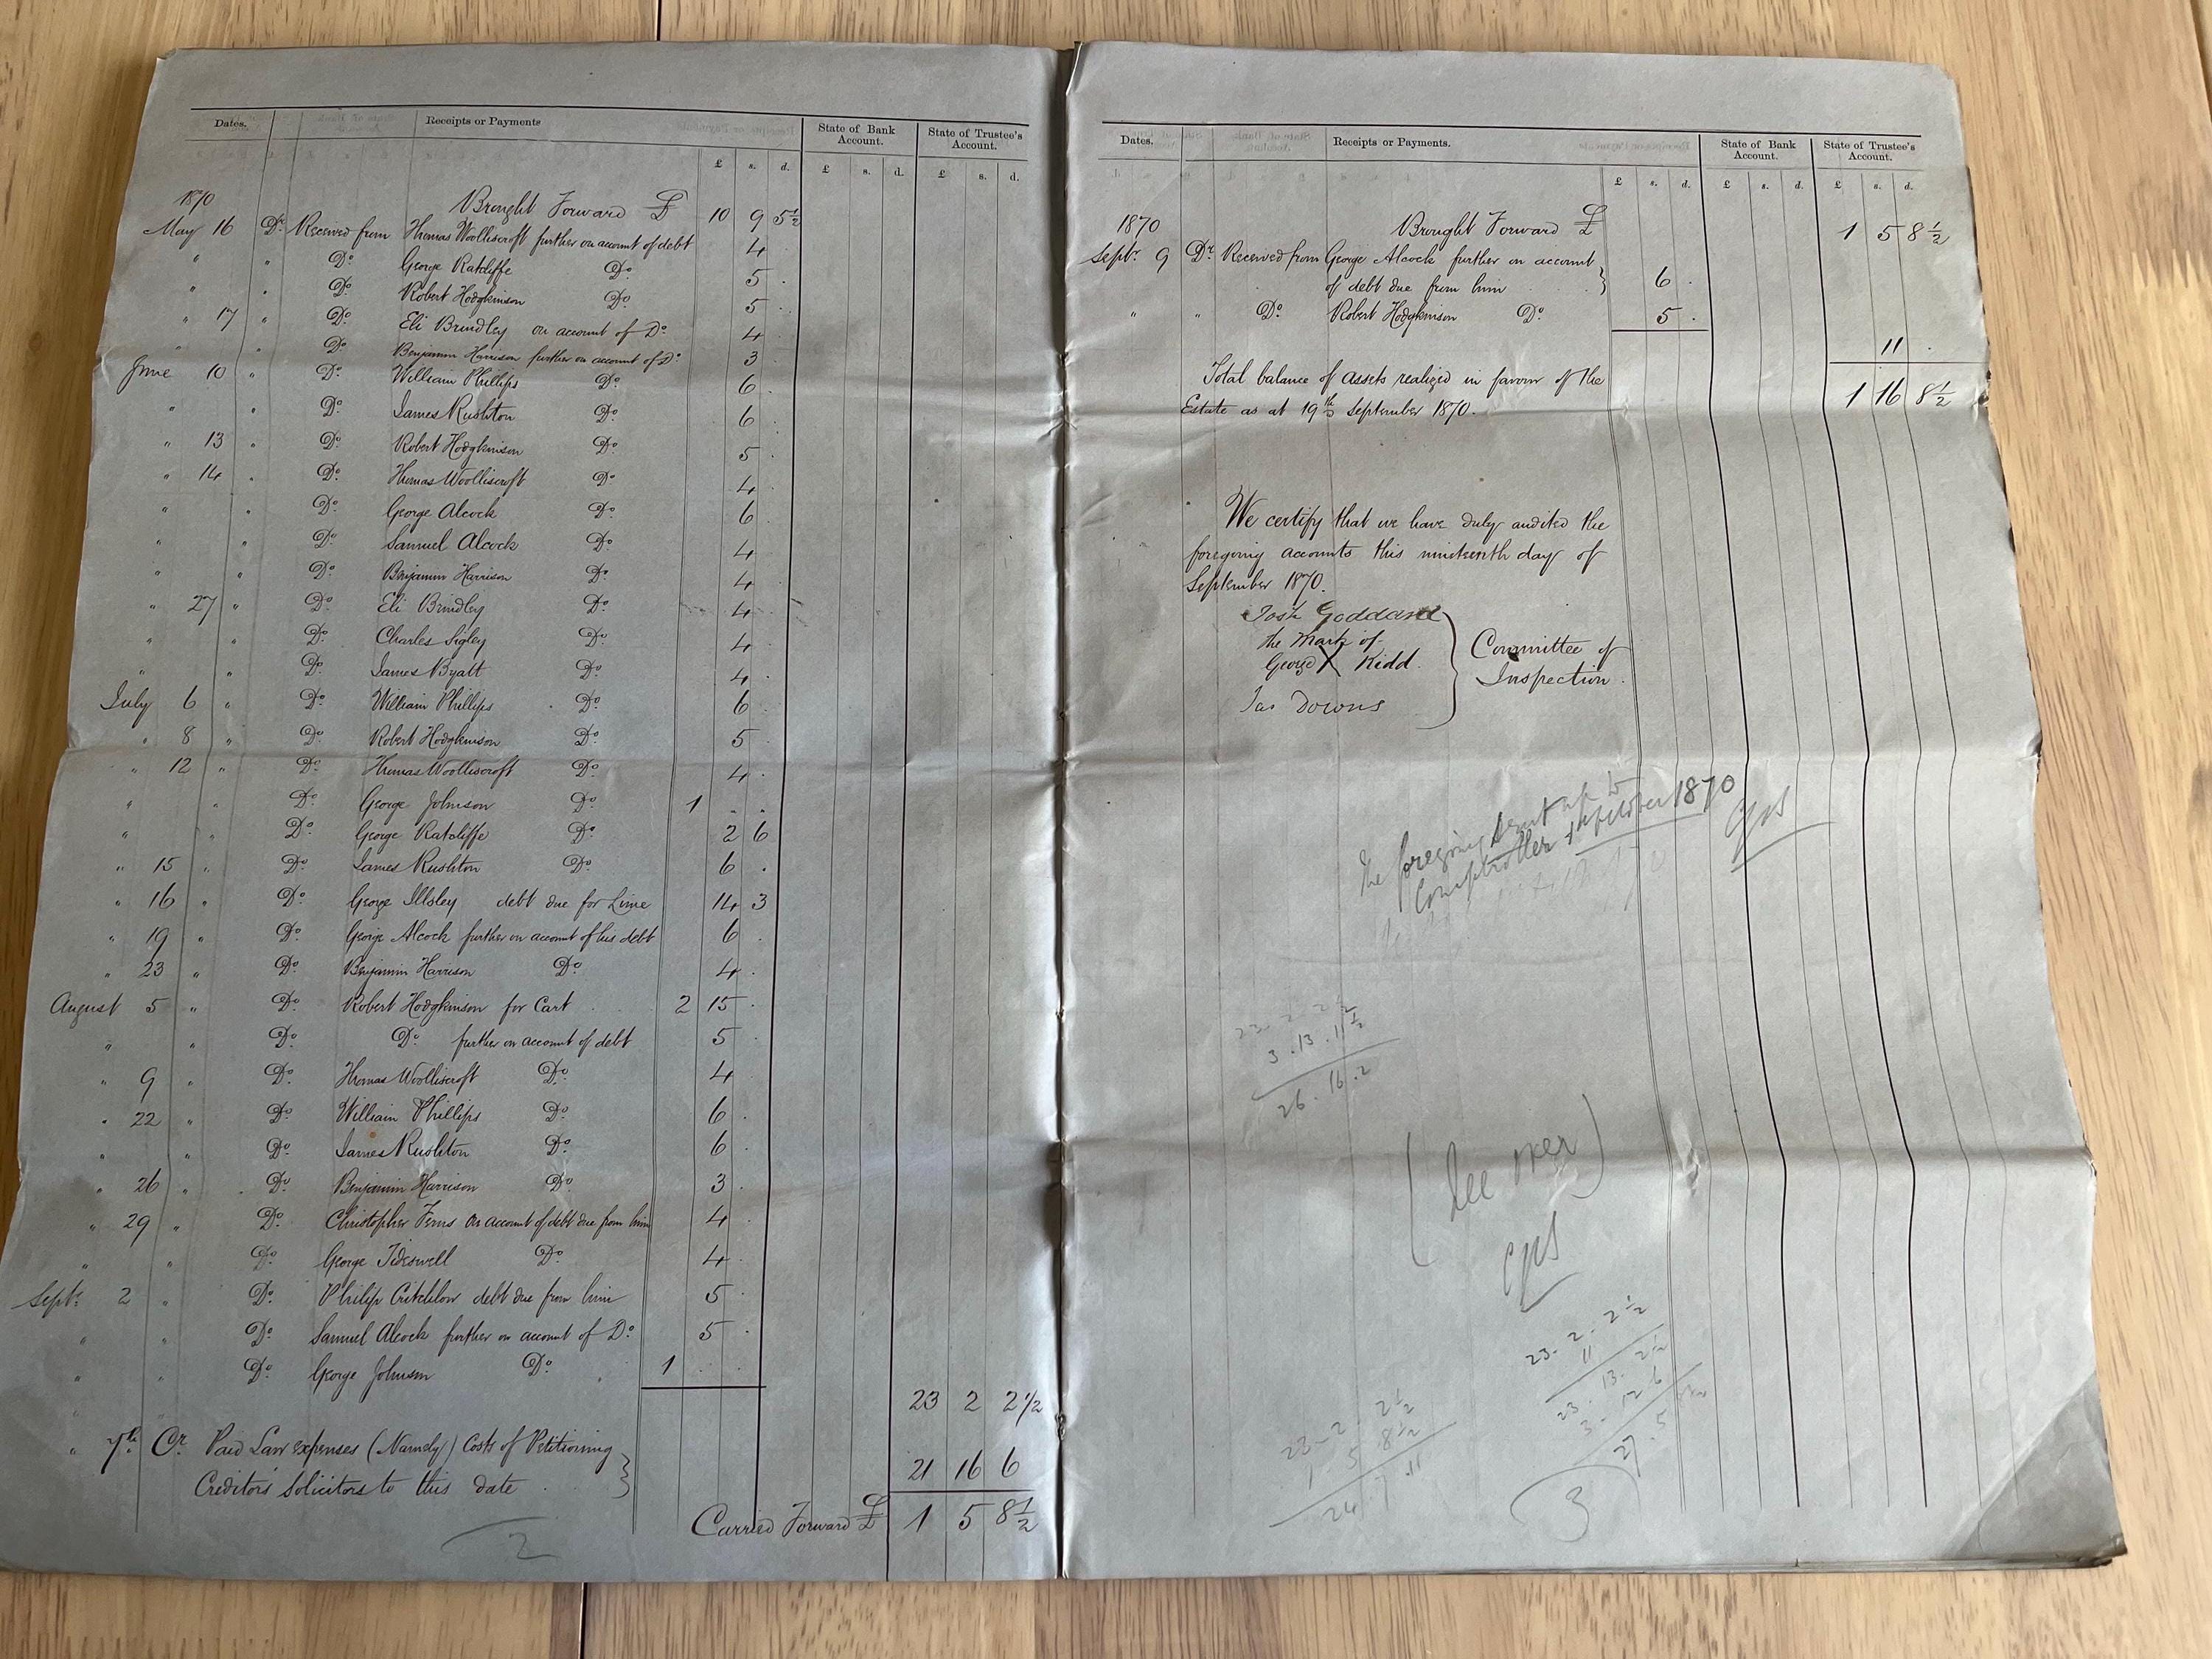 Dates. Receipts or Payments State of Bank Account. State of Trustee's Account.
£ s. d. £ s. d. £ s. d.
1870 Brought Forward £ 10 9 5½
May 16 Dr. Received from Thomas Woolliscroft further on account of debt 4 .
" " Do. George Ratcliffe Do. 5 .
" " Do. Robert Hodgkinson Do. 5 .
" 17 " Do. Eli Brindley on account of Do. 4 .
" Do. Benjamin Harrison further on account of Do. 3 .
June 10 " Do. William Phillips Do. 6 .
" " Do. James Rushton Do. 6 .
" 13 " Do. Robert Hodgkinson Do. 5 .
" 14 " Do. Thomas Woolliscroft Do. 4 .
" " Do. George Alcock Do. 6 .
" " Do. Samuel Alcock Do. 4 .
" " Do. Benjamin Harrison Do. 4 .
" 27 " Do. Eli Brindley Do. 4 .
" " Do. Charles Sigley Do. 4 .
" " Do. James Byatt Do. 4 .
July 6 " Do. William Phillips Do. 6 .
" 8 " Do. Robert Hodgkinson Do. 5 .
" 12 " Do. Thomas Woolliscroft Do. 4 .
" " Do. George Johnson Do. 1 . .
" " Do. George Ratcliffe Do. 2 6
" 15 " Do. James Rushton Do. 6 .
" 16 " Do. George Illsley debt due for Lime 14 3
" 19 " Do. George Alcock further on account of his debt 6 .
" 23 " Do. Benjamin Harrison Do. 4 .
August 5 " Do. Robert Hodgkinson for Cart 2 15 .
" " Do. Do. further on account of debt 5 .
" 9 " Do. Thomas Woolliscroft Do. 4 .
" 22 " Do. William Phillips Do. 6 .
" " Do. James Rushton Do. 6 .
" 26 " Do. Benjamin Harrison Do. 3 .
" 29 " Do. Christopher Ferns on account of debt due from him 4 .
" " Do. George Tideswell Do. 4 .
Septr. 2 " Do. Philip Critchlow debt due from him 5 .
" " Do. Samuel Alcock further on account of Do. 5 .
" " Do. George Johnson Do. 1 . .
23 2 2½
" 7th. Cr. Paid Law expenses (Namely) Costs of Petitioning
Creditors Solicitors to this date 21 16 6
Carried Forward £ 1 5 8½
2
Dates. Receipts or Payments. State of Bank Account. State of Trustee's Account.
£ s. d. £ s. d. £ s. d.
1870 Brought Forward £ 1 5 8½
Septr. 9 Dr. Received from George Alcock further on account
of debt due from him 6 .
" " Do. Robert Hodgkinson Do. 5 .
11 .
Total balance of assets realized in favor of the
Estate as at 19th September 1870. 1 16 8½
We certify that we have duly audited the
foregoing accounts this nineteenth day of
September 1870.
Josh Goddard
the Mark of
George X Kidd.
Jas Downs
Committee of
Inspection.
The foregoing sent up to
Comptroller 1870
23. 2. 2½
3. 13. 11½
26. 16. 2
(See over)
23. 2. 2½
11
23. 13. 2½
3. 12. 6
27. 5. 8½
23. 2. 2½
1 5 8½
24. 7. 11
3